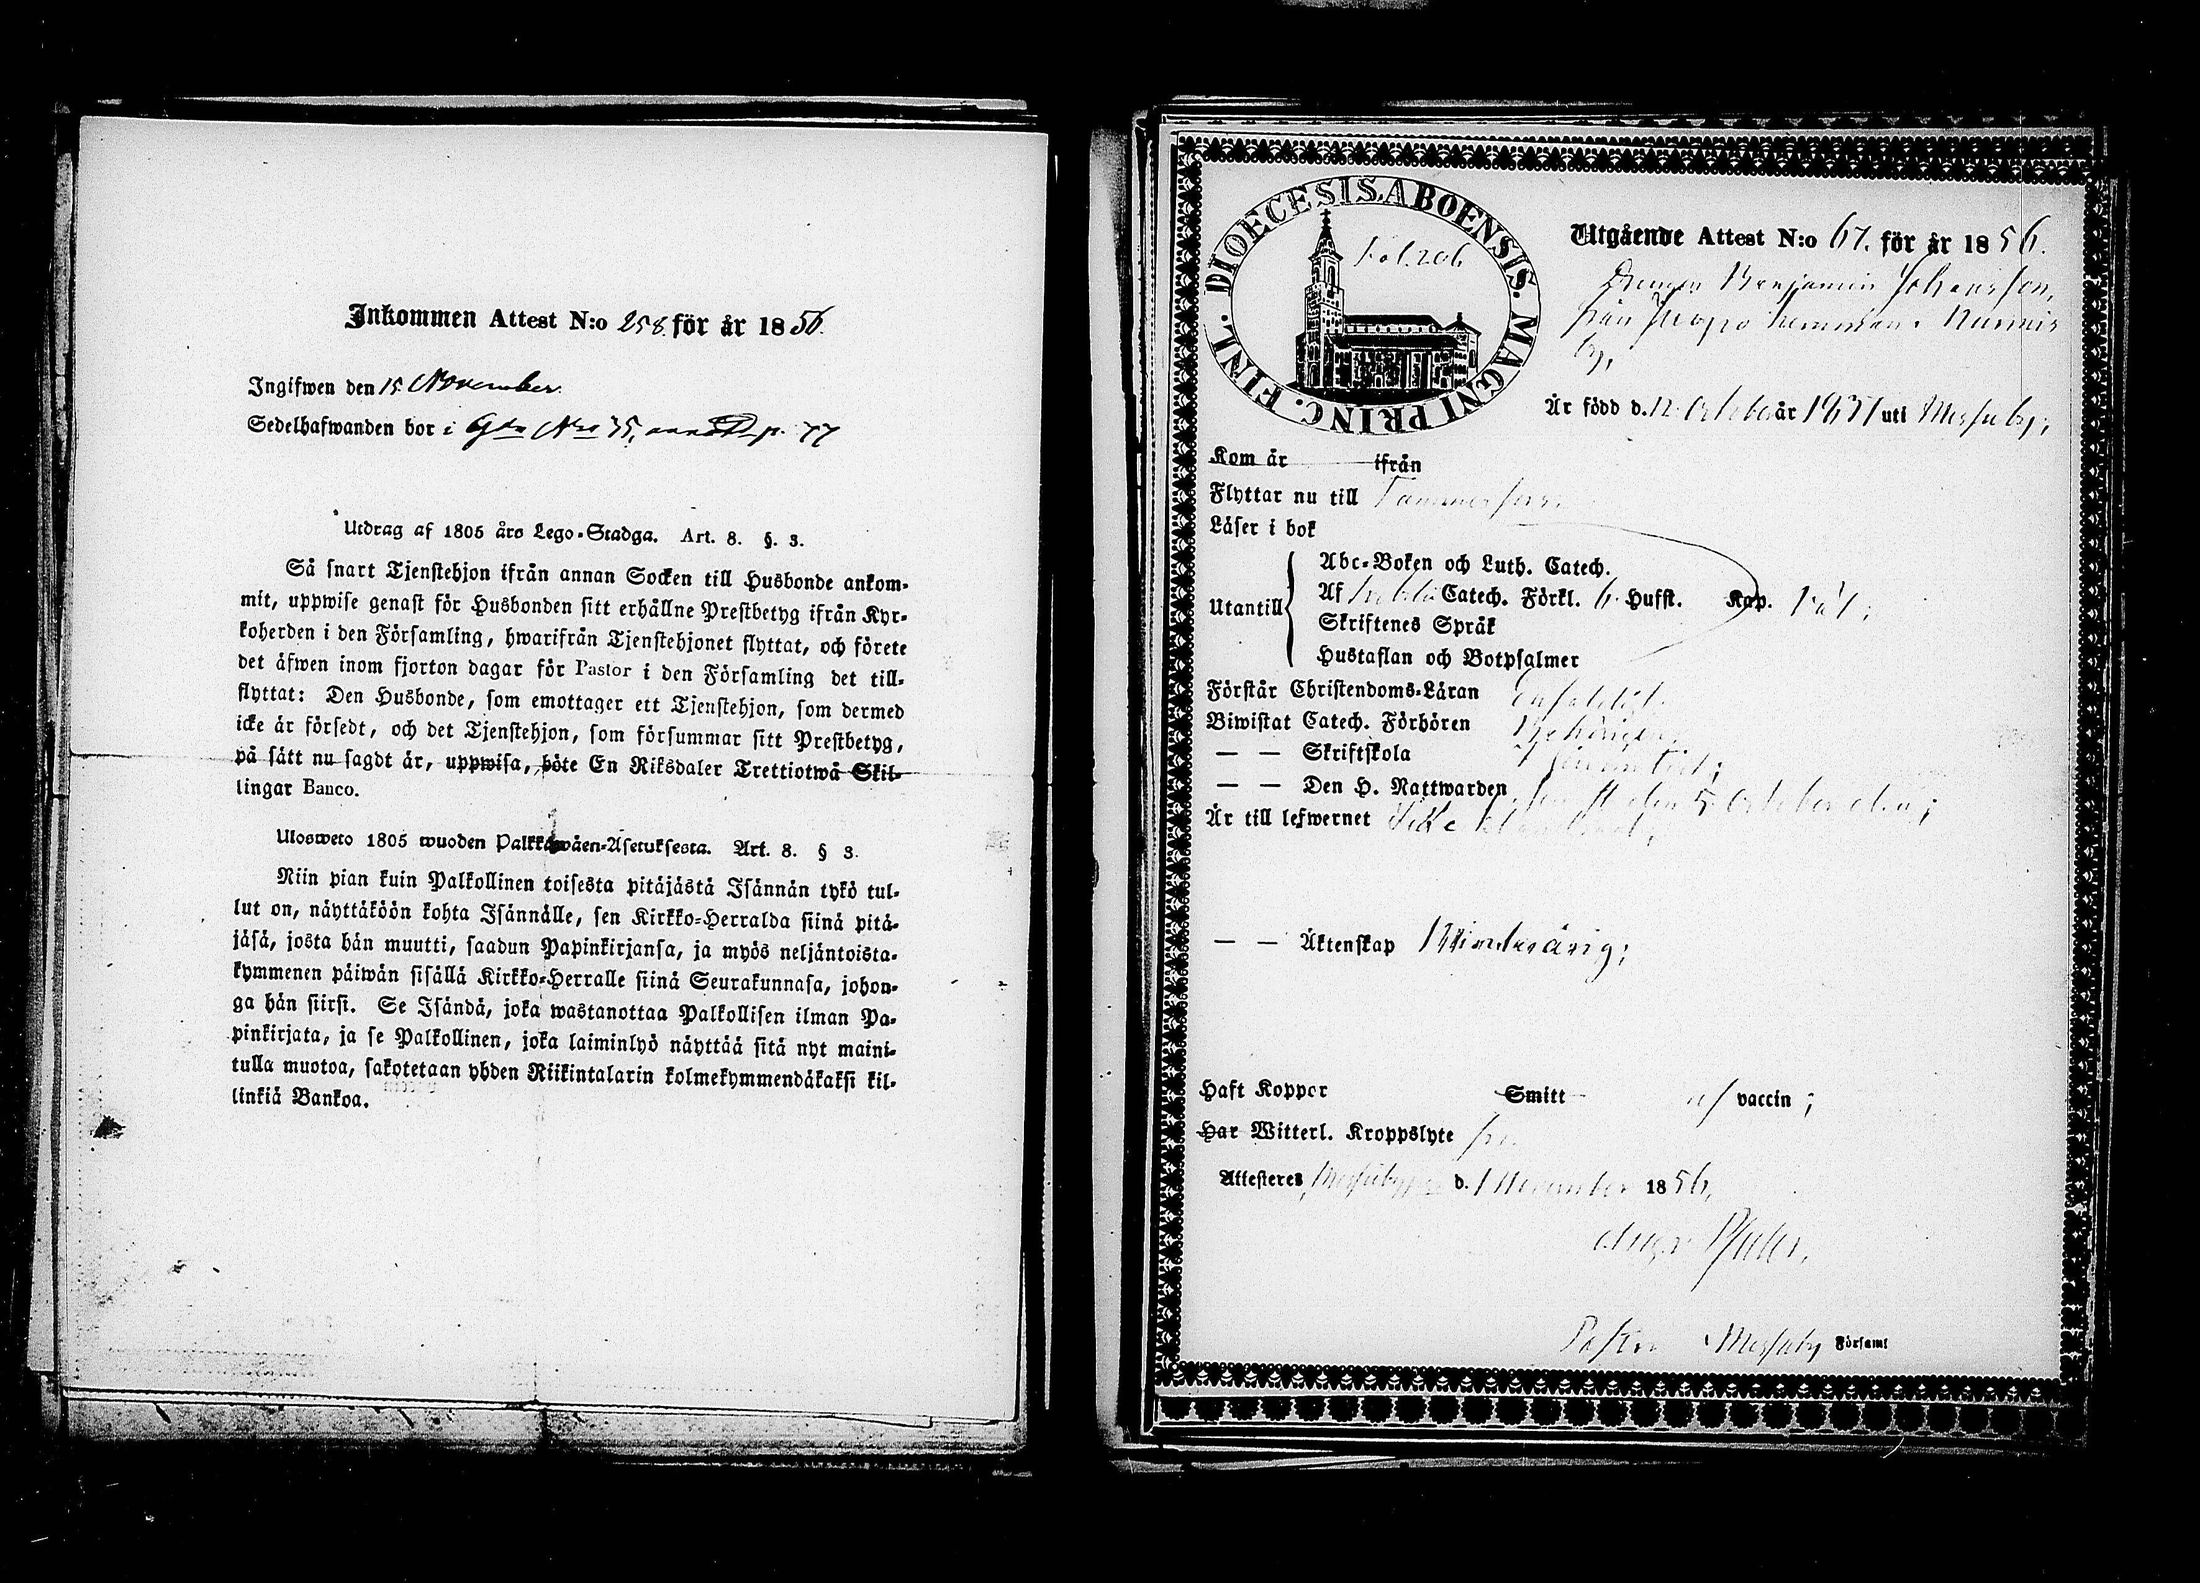 Inkommen Attest N:o 258. för år 1856.
Ingifwen den 15 November.
Sedelhafwanden bor i Gdn Nro 75, p. 77
Utdrag af 1805 års Lego-Stadga. Art. 8. §. 3.
Så snart Tjenstehjon ifrån annan Socken till Husbonde ankom-
mit, uppwise genast för Husbonden sitt erhållne Prestbetyg ifrån Kyr-
koherden i den Församling, hwarifrån Tjenstehjonet flyttat, och förete
det äfwen inom fjorton dagar för Pastor i den Församling det till-
flyttat: Den Husbonde, som emottager ett Tjenstehjon, som dermed
icke är försedt, och det Tjenstehjon, som försummar sitt Prestbetyg,
på sätt nu sagdt är, uppwisa, böte En Riksdaler Trettiotwå Skil-
lingar Banco.
Ulosweto 1805 wuoden Palkkawäen-Asetuksesta. Art. 8. § 3.
Niin pian kuin Palkollinen toisesta pitäjästä Isännän tykö tul-
lut on, näyttäköön kohta Isännälle, sen Kirkko-Herralda siinä pitä-
jäsä, josta hän muutti, saadun Papinkirjansa, ja myös neljäntoista-
kymmenen päiwän sisällä Kirkko-Herralle siinä Seurakunnasa, johon-
ga hän siirsi. Se Isändä, joka wastanottaa Palkollisen ilman Pa-
pinkirjata, ja se Palkollinen, joka laiminlyö näyttää sitä nyt maini-
tulla muotoa, sakotetaan yhden Riikintalarin kolmekymmendäkaksi kil-
linkiä Bankoa.
DIOECESIS.ABOENSIS. MAGNI PRINC. FINL.
Fol. 206
Utgående Attest N:o 67. för år 1856.
Drengen Benjamin Johansson,
från
by,
Är född d. 12 October år 1837 uti Messuby;
Kom år ifrån
Flyttar nu till Tammerfors,
Läser i bok
Utantill
Abc-Boken och Luth. Catech.
Af Catech. Förkl. 6 Hufst. Kap.
Skriftenes Språk
Hustaflan och Botpsalmer
Förstår Christendoms-Läran
Biwistat Catech. Förhören
— — Skriftskola
— — Den H. Nattwarden sednast den 5 October
Är till lefwernet
— — Äktenskap Minderårig;
Haft Koppor Smitt af vaccin;
Har Witterl. Kroppslyte
Attesteres Messuby d. 1 November 1856,
Pastor Messuby Församl